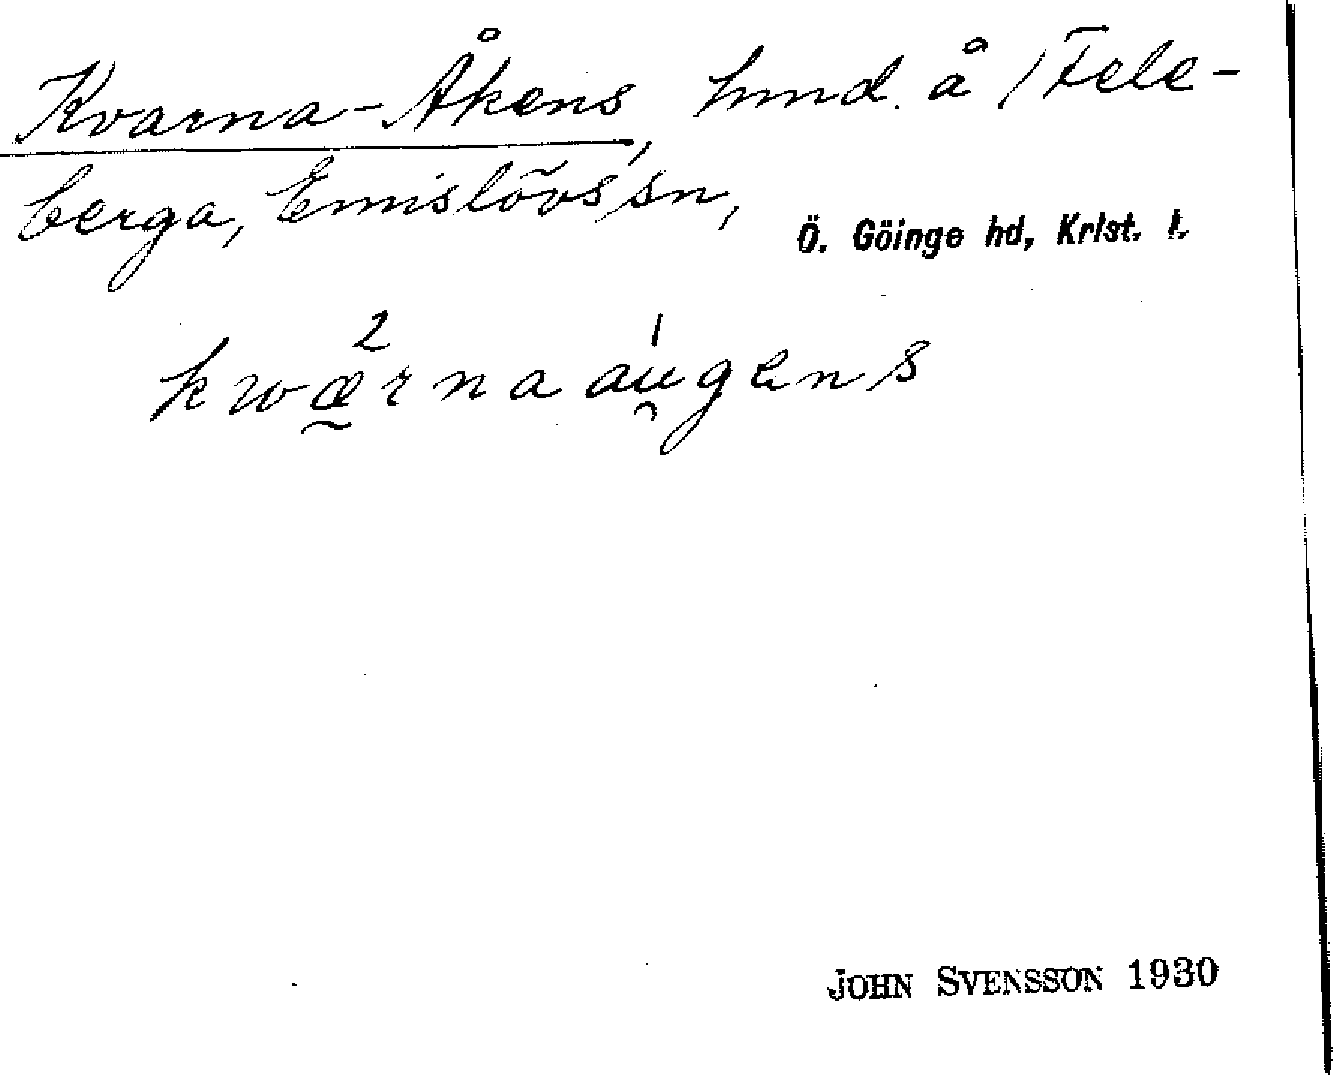 Kvarna-Åkens, hmd. å 1 Fele-
berga, Emislövs sn,
Ö. Göinge hd, Krist. l.
kwærnaáugens
JOHN SVENSSON 1930